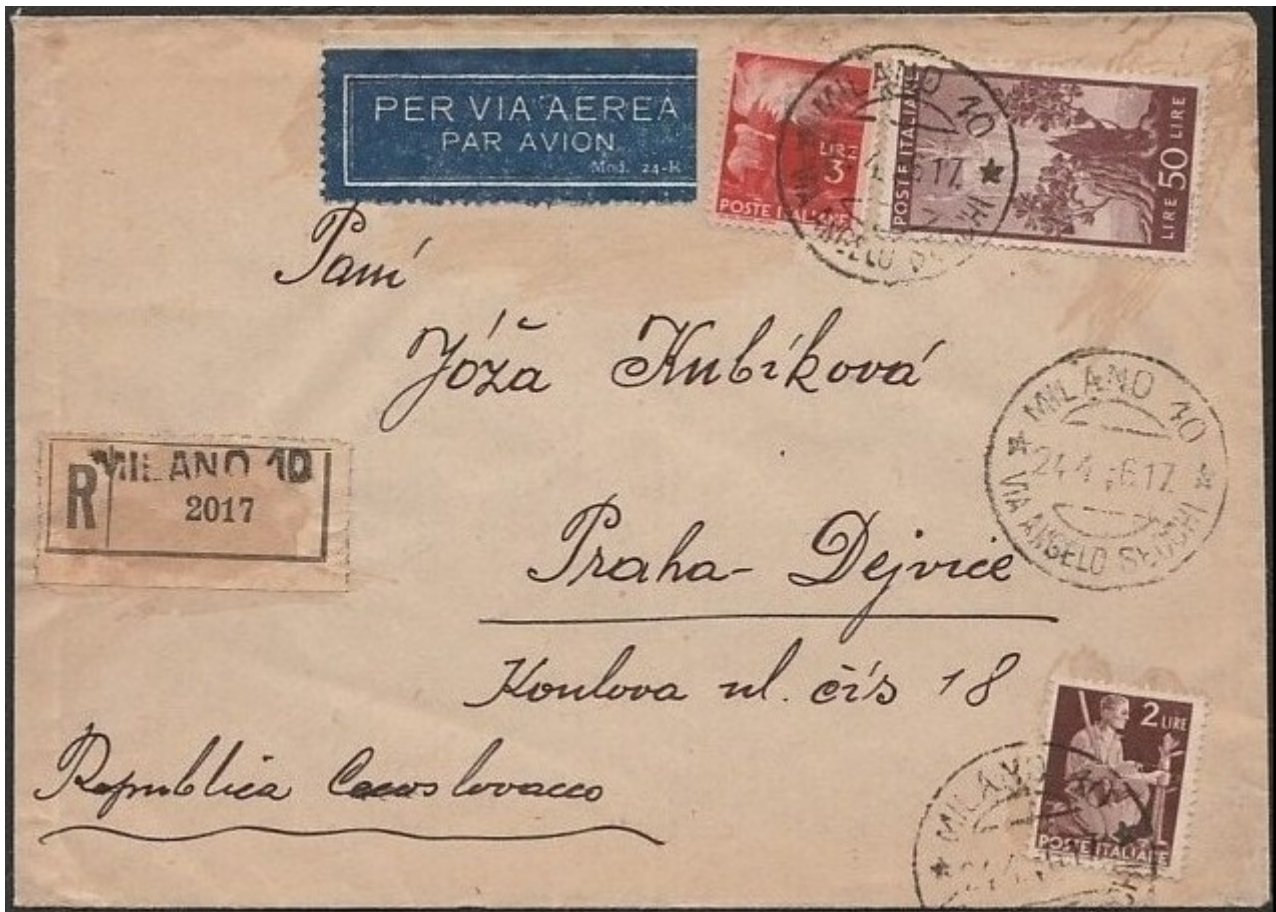 PER VIA AEREA
PAR AVION
Mod. 24-R
LIRE 3
POSTE ITALIANE
POSTE ITALIANE
LIRE 50 LIRE
MILANO 10
VIA ANGELO SECCHI
Paní
Jóža Kubíková
MILANO 10
24.4 46.17
VIA ANGELO SECCHI
R
MILANO 10
2017
Praha- Dejvice
Koulova ul. čís 18
Republica Cecoslovacco
2 LIRE
POSTE ITALIANE
MILANO 10